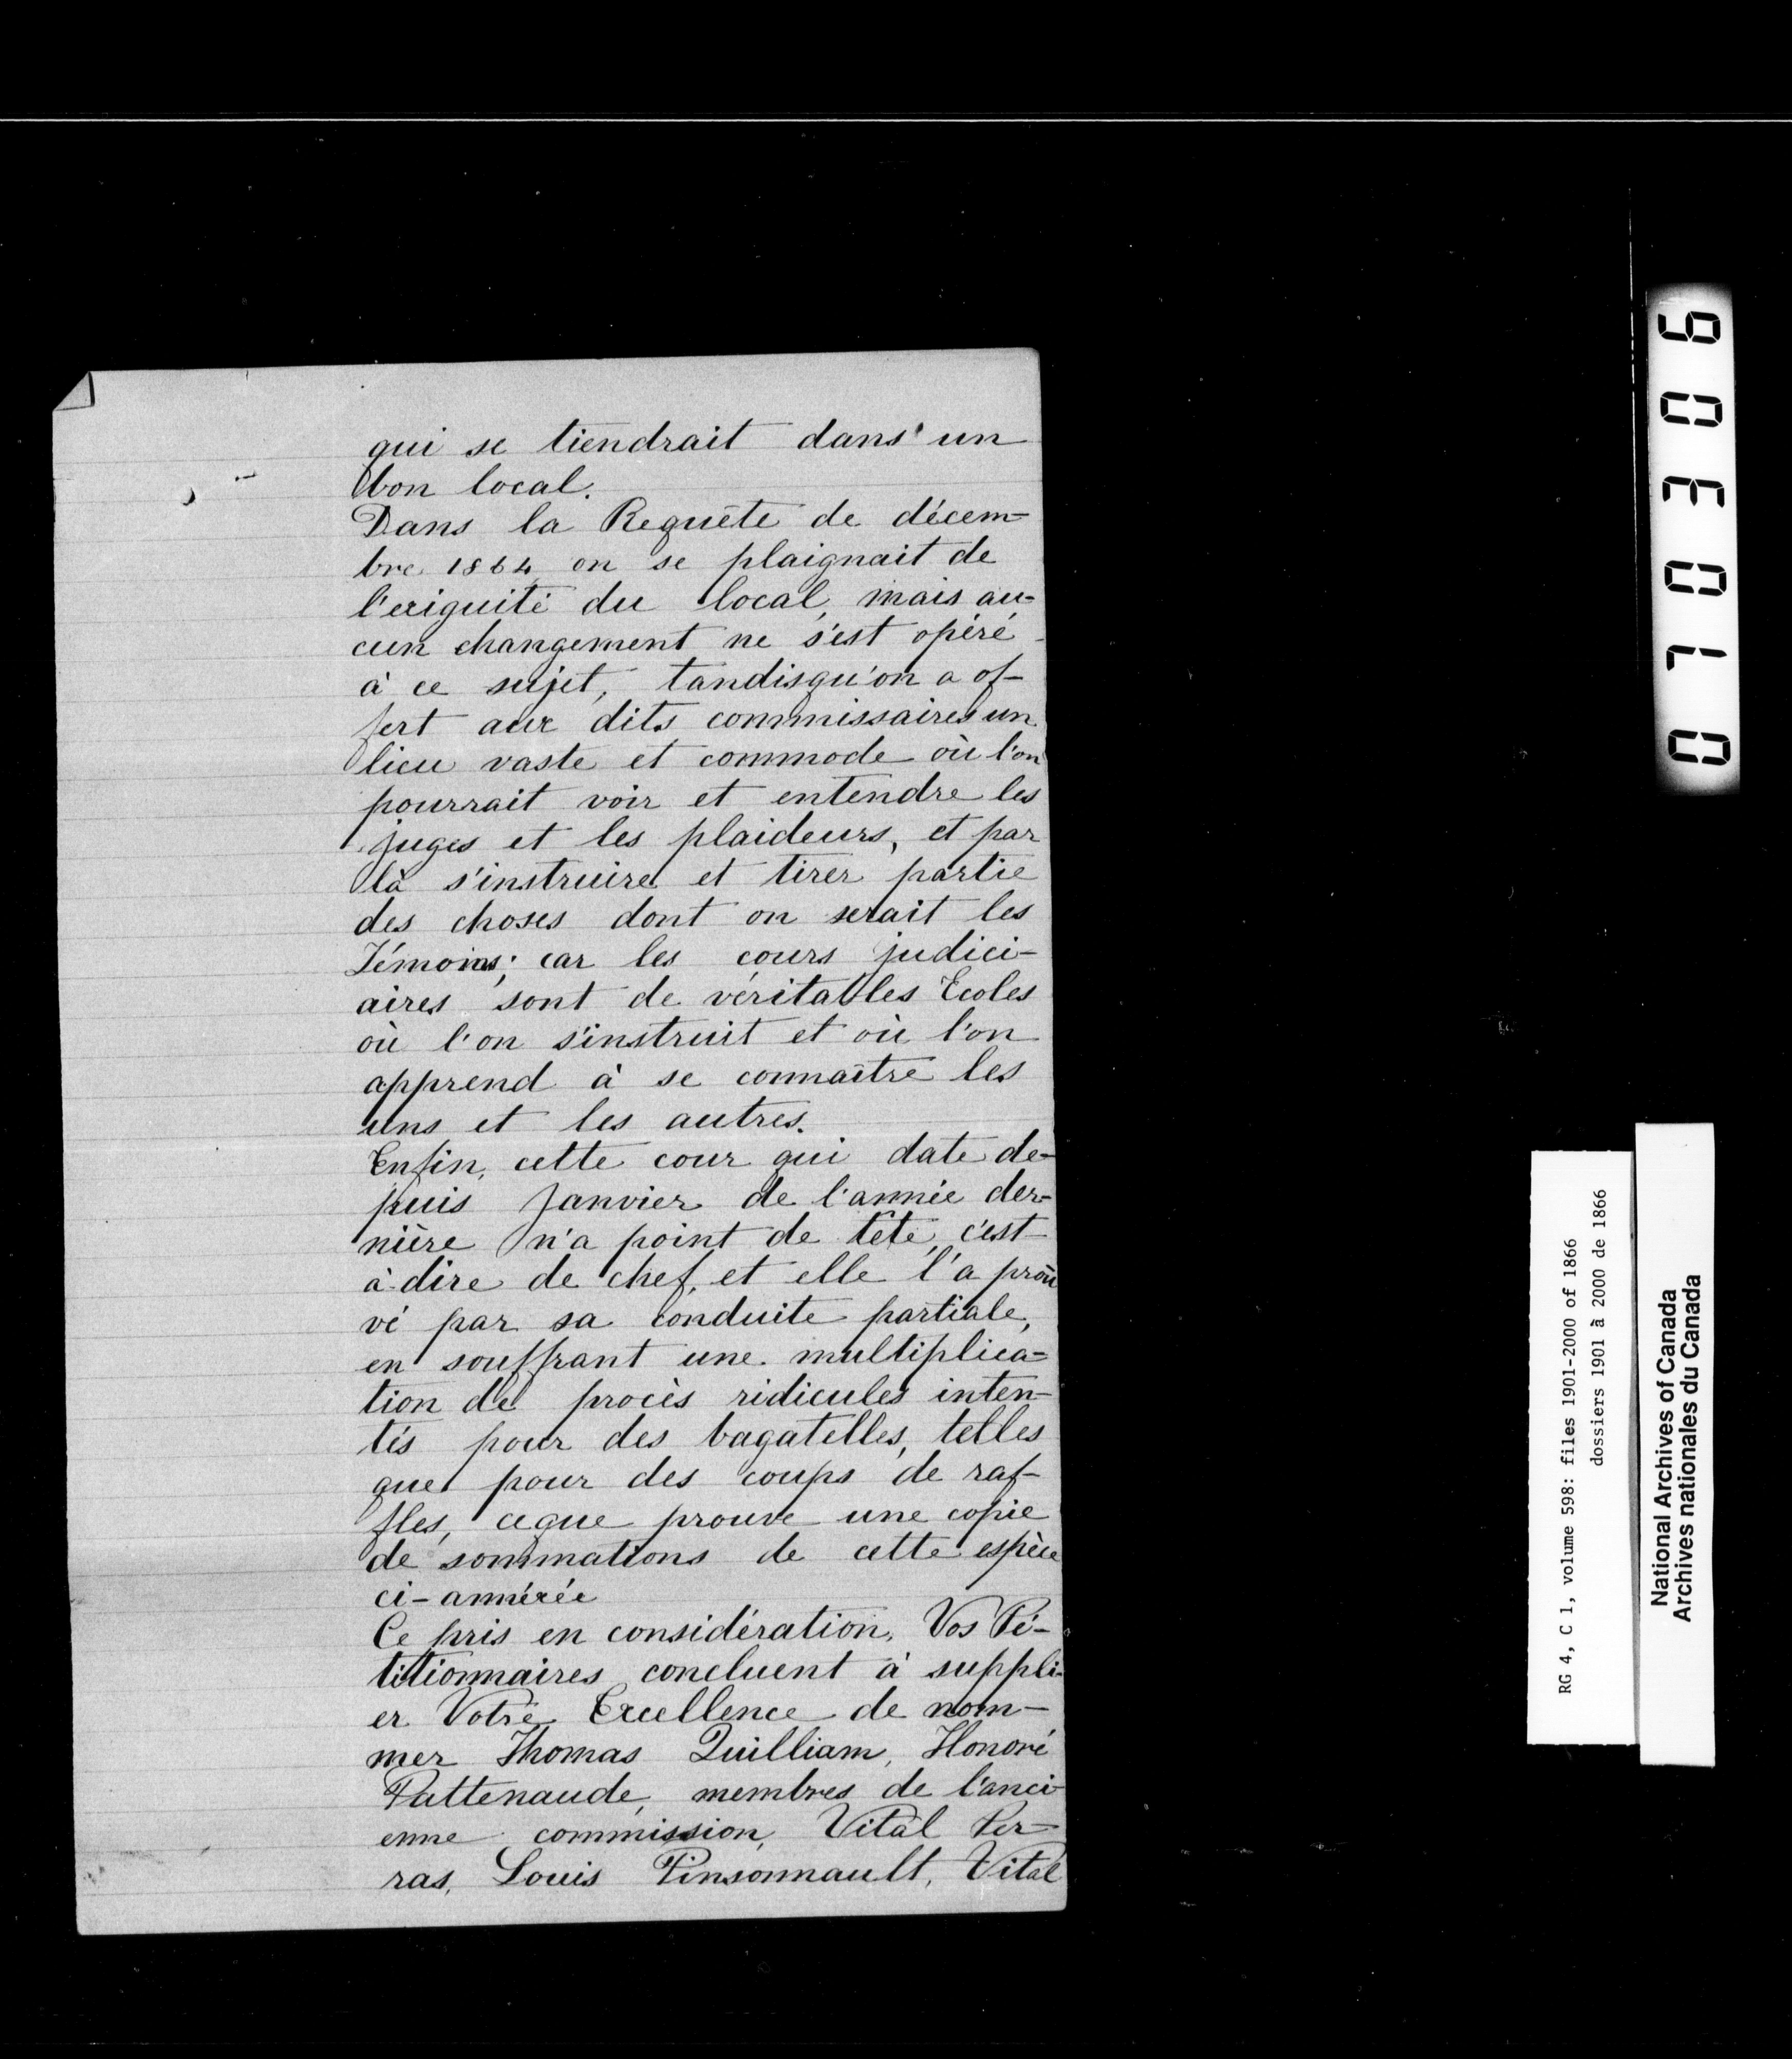 qui se tiendrait dans un
bon local.
Dans la Requête de décem-
bre 1864 on se plaignait de
l'exiguité du local, mais au-
cun changement ne s'est opéré
à ce sujet, tandisqu'on a of-
fert aux dits commissaires un
lieu vaste et commode où l'on
pourrait voir et entendre les
juges et les plaideurs, et par
là s'instruire et tirer partie
des choses dont on serait les
Témoins; car les cours judici-
aires sont de véritables Ecoles
où l'on s'instruit et où l'on
apprend à se connaître les
uns et les autres.
Enfin, cette cour qui date de-
puis Janvier de l'année der-
nière n'a point de tête, c'est
à-dire de chef, et elle l'a prou
vé par sa conduite partiale,
en souffrant une multiplica-
tion de procès ridicules inten-
tés pour des bagatelles, telles
que pour des coups de raf-
fles, ceque prouve une copie
de sommations de cette espèce
ci-annéxée
Ce pris en considération, Vos Pé-
titionnaires concluent à suppli-
er Votre Excellence de nom-
mer Thomas Quilliam, Honoré
Pattenaude, membres de l'anci-
enne commission, Vital Per-
ras, Louis Pinsonnault, Vital
070306
RG 4, C 1, volume 598: files 1901-2000 of 1866
dossiers 1901 à 2000 de 1866
National Archives of Canada
Archives nationales du Canada